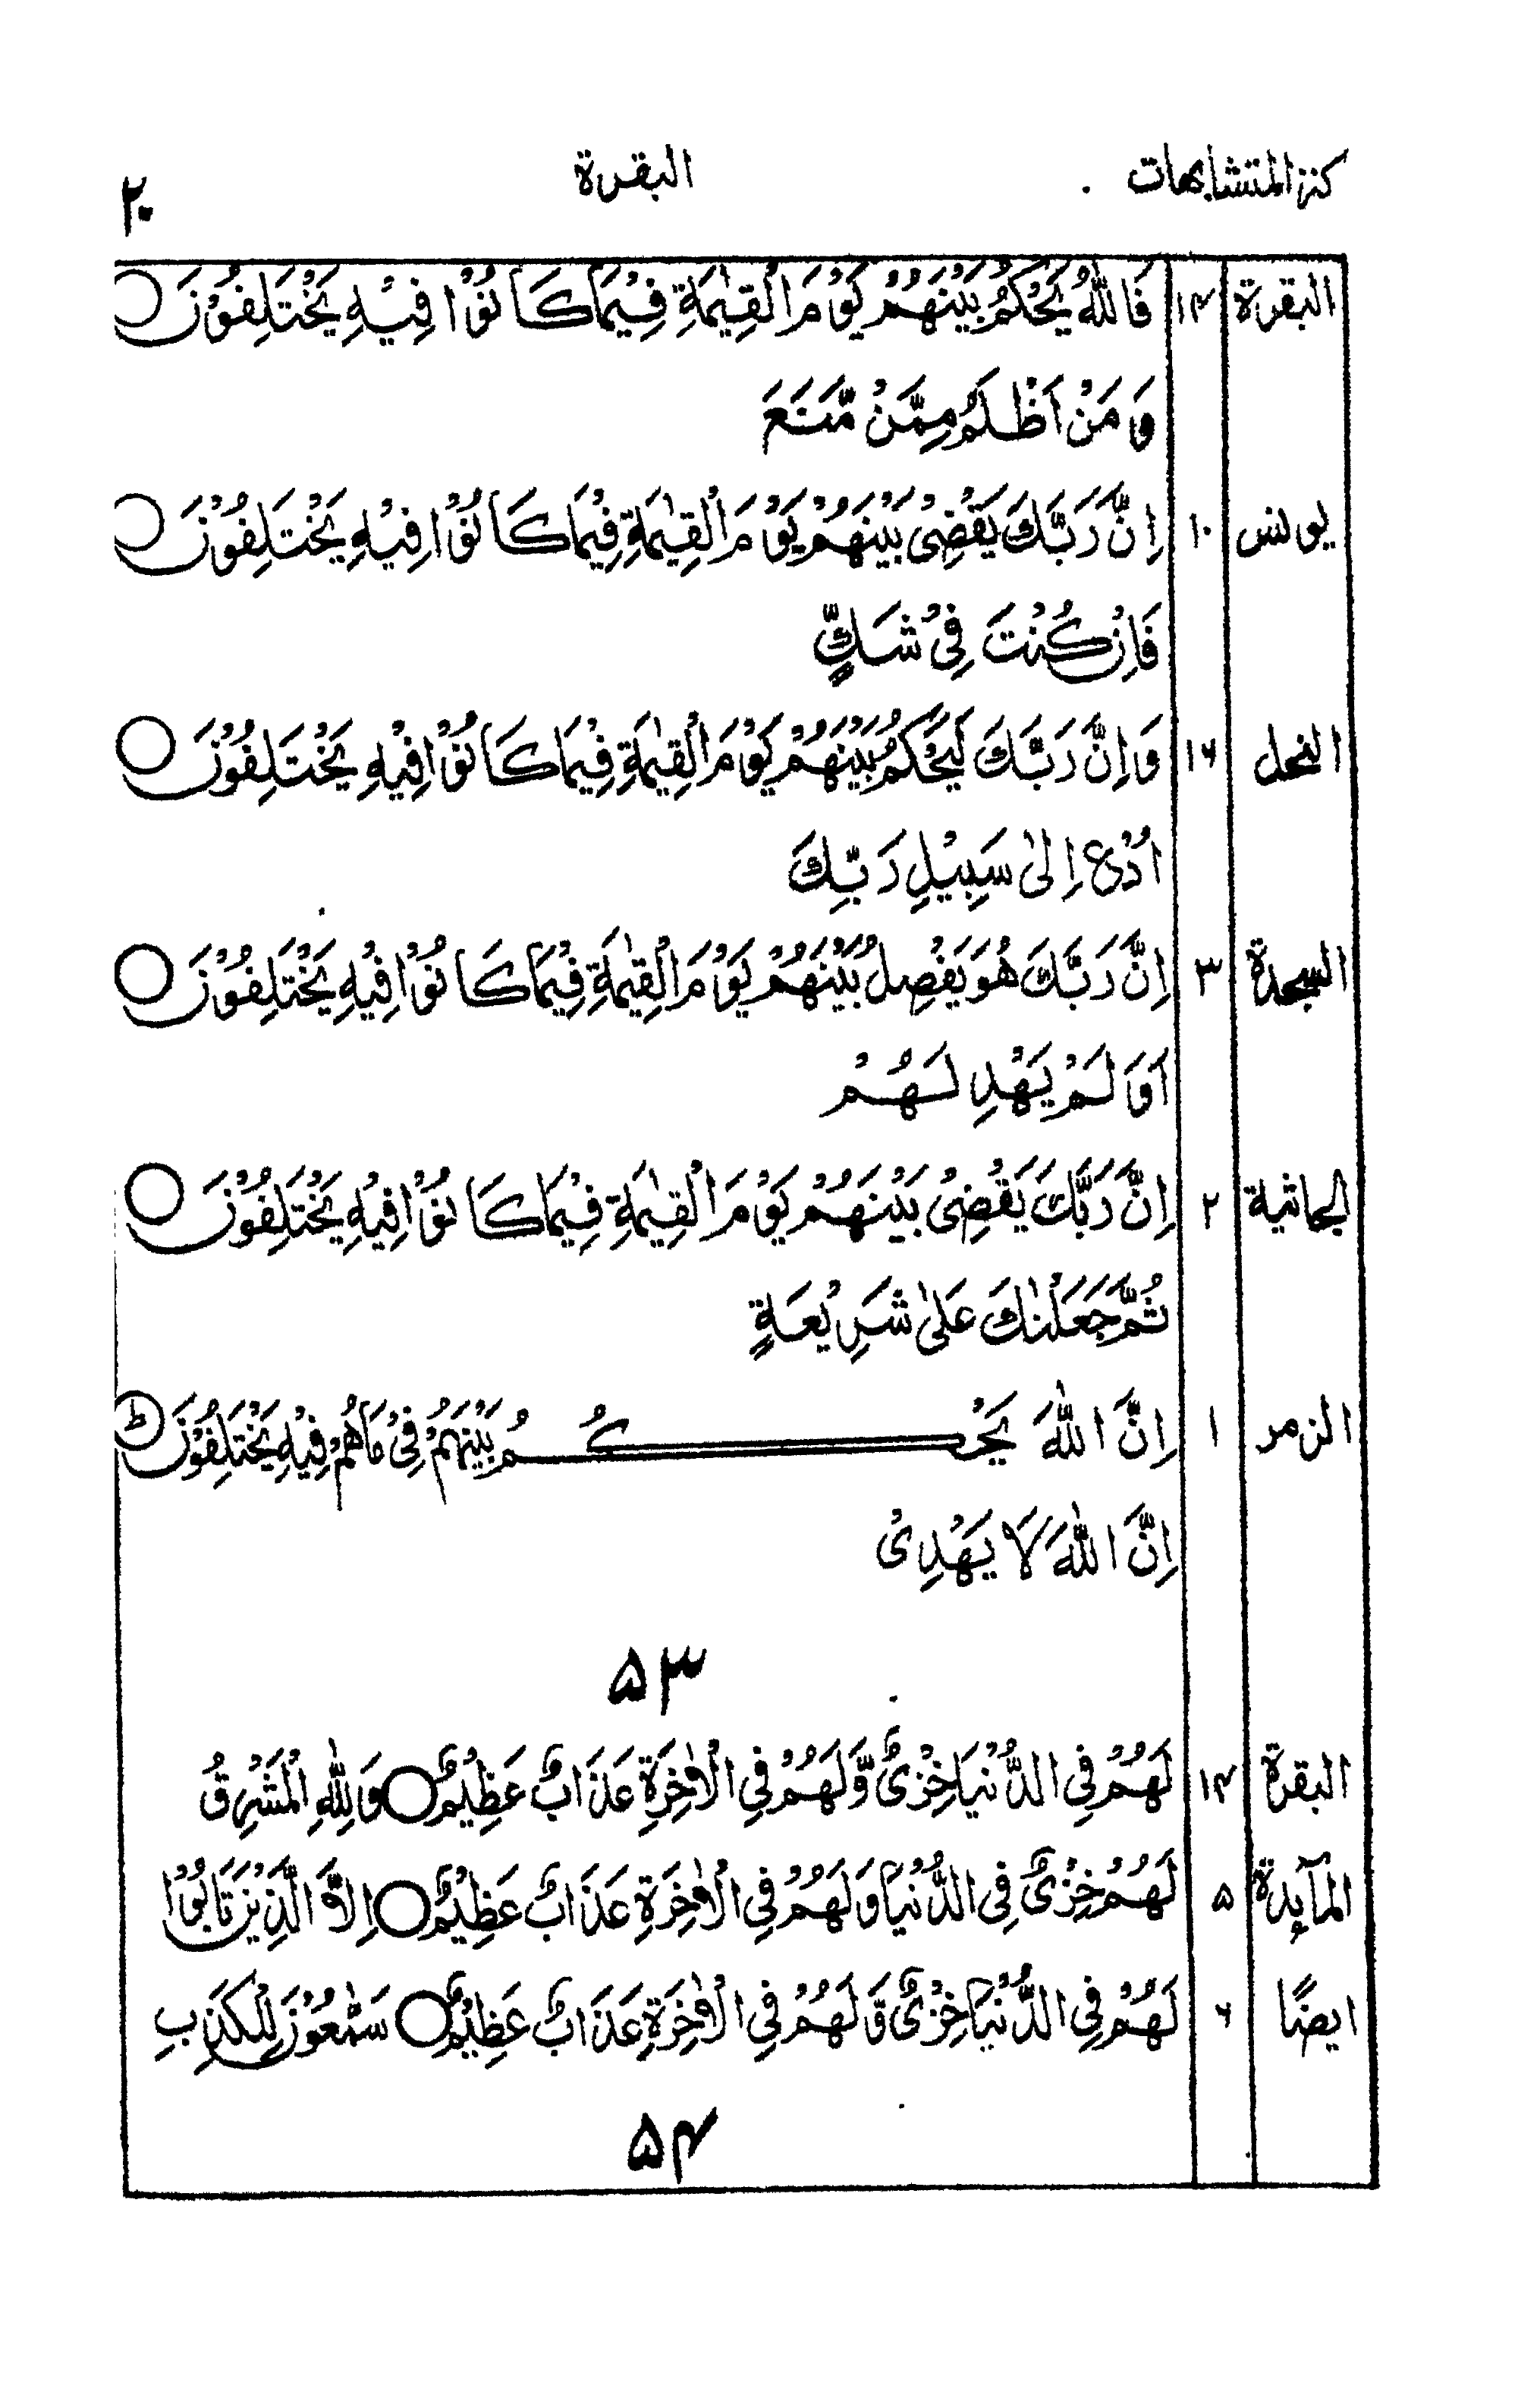 كنز المتشابهات البقرة ٢٠
البقرة ١۴ فَاللّٰهُ يَحْكُمُ بَيْنَهُمْ يَوْمَ الْقِيٰمَةِ فِيْمَا كَانُوْا فِيْهِ يَخْتَلِفُوْنَ ○
وَمَنْ اَظْلَمُ مِمَّنْ مَّنَعَ
يونس ١٠ اِنَّ رَبَّكَ يَقْضِىْ بَيْنَهُمْ يَوْمَ الْقِيٰمَةِ فِيْمَا كَانُوْا فِيْهِ يَخْتَلِفُوْنَ ○
فَاِنْ كُنْتَ فِىْ شَكٍّ
النحل ١۶ وَاِنَّ رَبَّكَ لَيَحْكُمُ بَيْنَهُمْ يَوْمَ الْقِيٰمَةِ فِيْمَا كَانُوْا فِيْهِ يَخْتَلِفُوْنَ ○
اُدْعُ اِلٰى سَبِيْلِ رَبِّكَ
السجدة ٣ اِنَّ رَبَّكَ هُوَ يَفْصِلُ بَيْنَهُمْ يَوْمَ الْقِيٰمَةِ فِيْمَا كَانُوْا فِيْهِ يَخْتَلِفُوْنَ ○
اَوَلَمْ يَهْدِ لَهُمْ
الجاثية ٢ اِنَّ رَبَّكَ يَقْضِىْ بَيْنَهُمْ يَوْمَ الْقِيٰمَةِ فِيْمَا كَانُوْا فِيْهِ يَخْتَلِفُوْنَ ○
ثُمَّ جَعَلْنٰكَ عَلٰى شَرِيْعَةٍ
الزمر ١ اِنَّ اللّٰهَ يَحْكُمُ بَيْنَهُمْ فِىْ مَا هُمْ فِيْهِ يَخْتَلِفُوْنَ ط
اِنَّ اللّٰهَ لَا يَهْدِىْ
۵٣
البقرة ١۴ لَهُمْ فِى الدُّنْيَا خِزْىٌ وَّلَهُمْ فِى الْاٰخِرَةِ عَذَابٌ عَظِيْمٌ ○ وَلِلّٰهِ الْمَشْرِقُ
المآئدة ۵ لَهُمْ خِزْىٌ فِى الدُّنْيَا وَلَهُمْ فِى الْاٰخِرَةِ عَذَابٌ عَظِيْمٌ ○ اِلَّا الَّذِيْنَ تَابُوْا
ايضًا ۶ لَهُمْ فِى الدُّنْيَا خِزْىٌ وَّلَهُمْ فِى الْاٰخِرَةِ عَذَابٌ عَظِيْمٌ ○ سَمّٰعُوْنَ لِلْكَذِبِ
۵۴